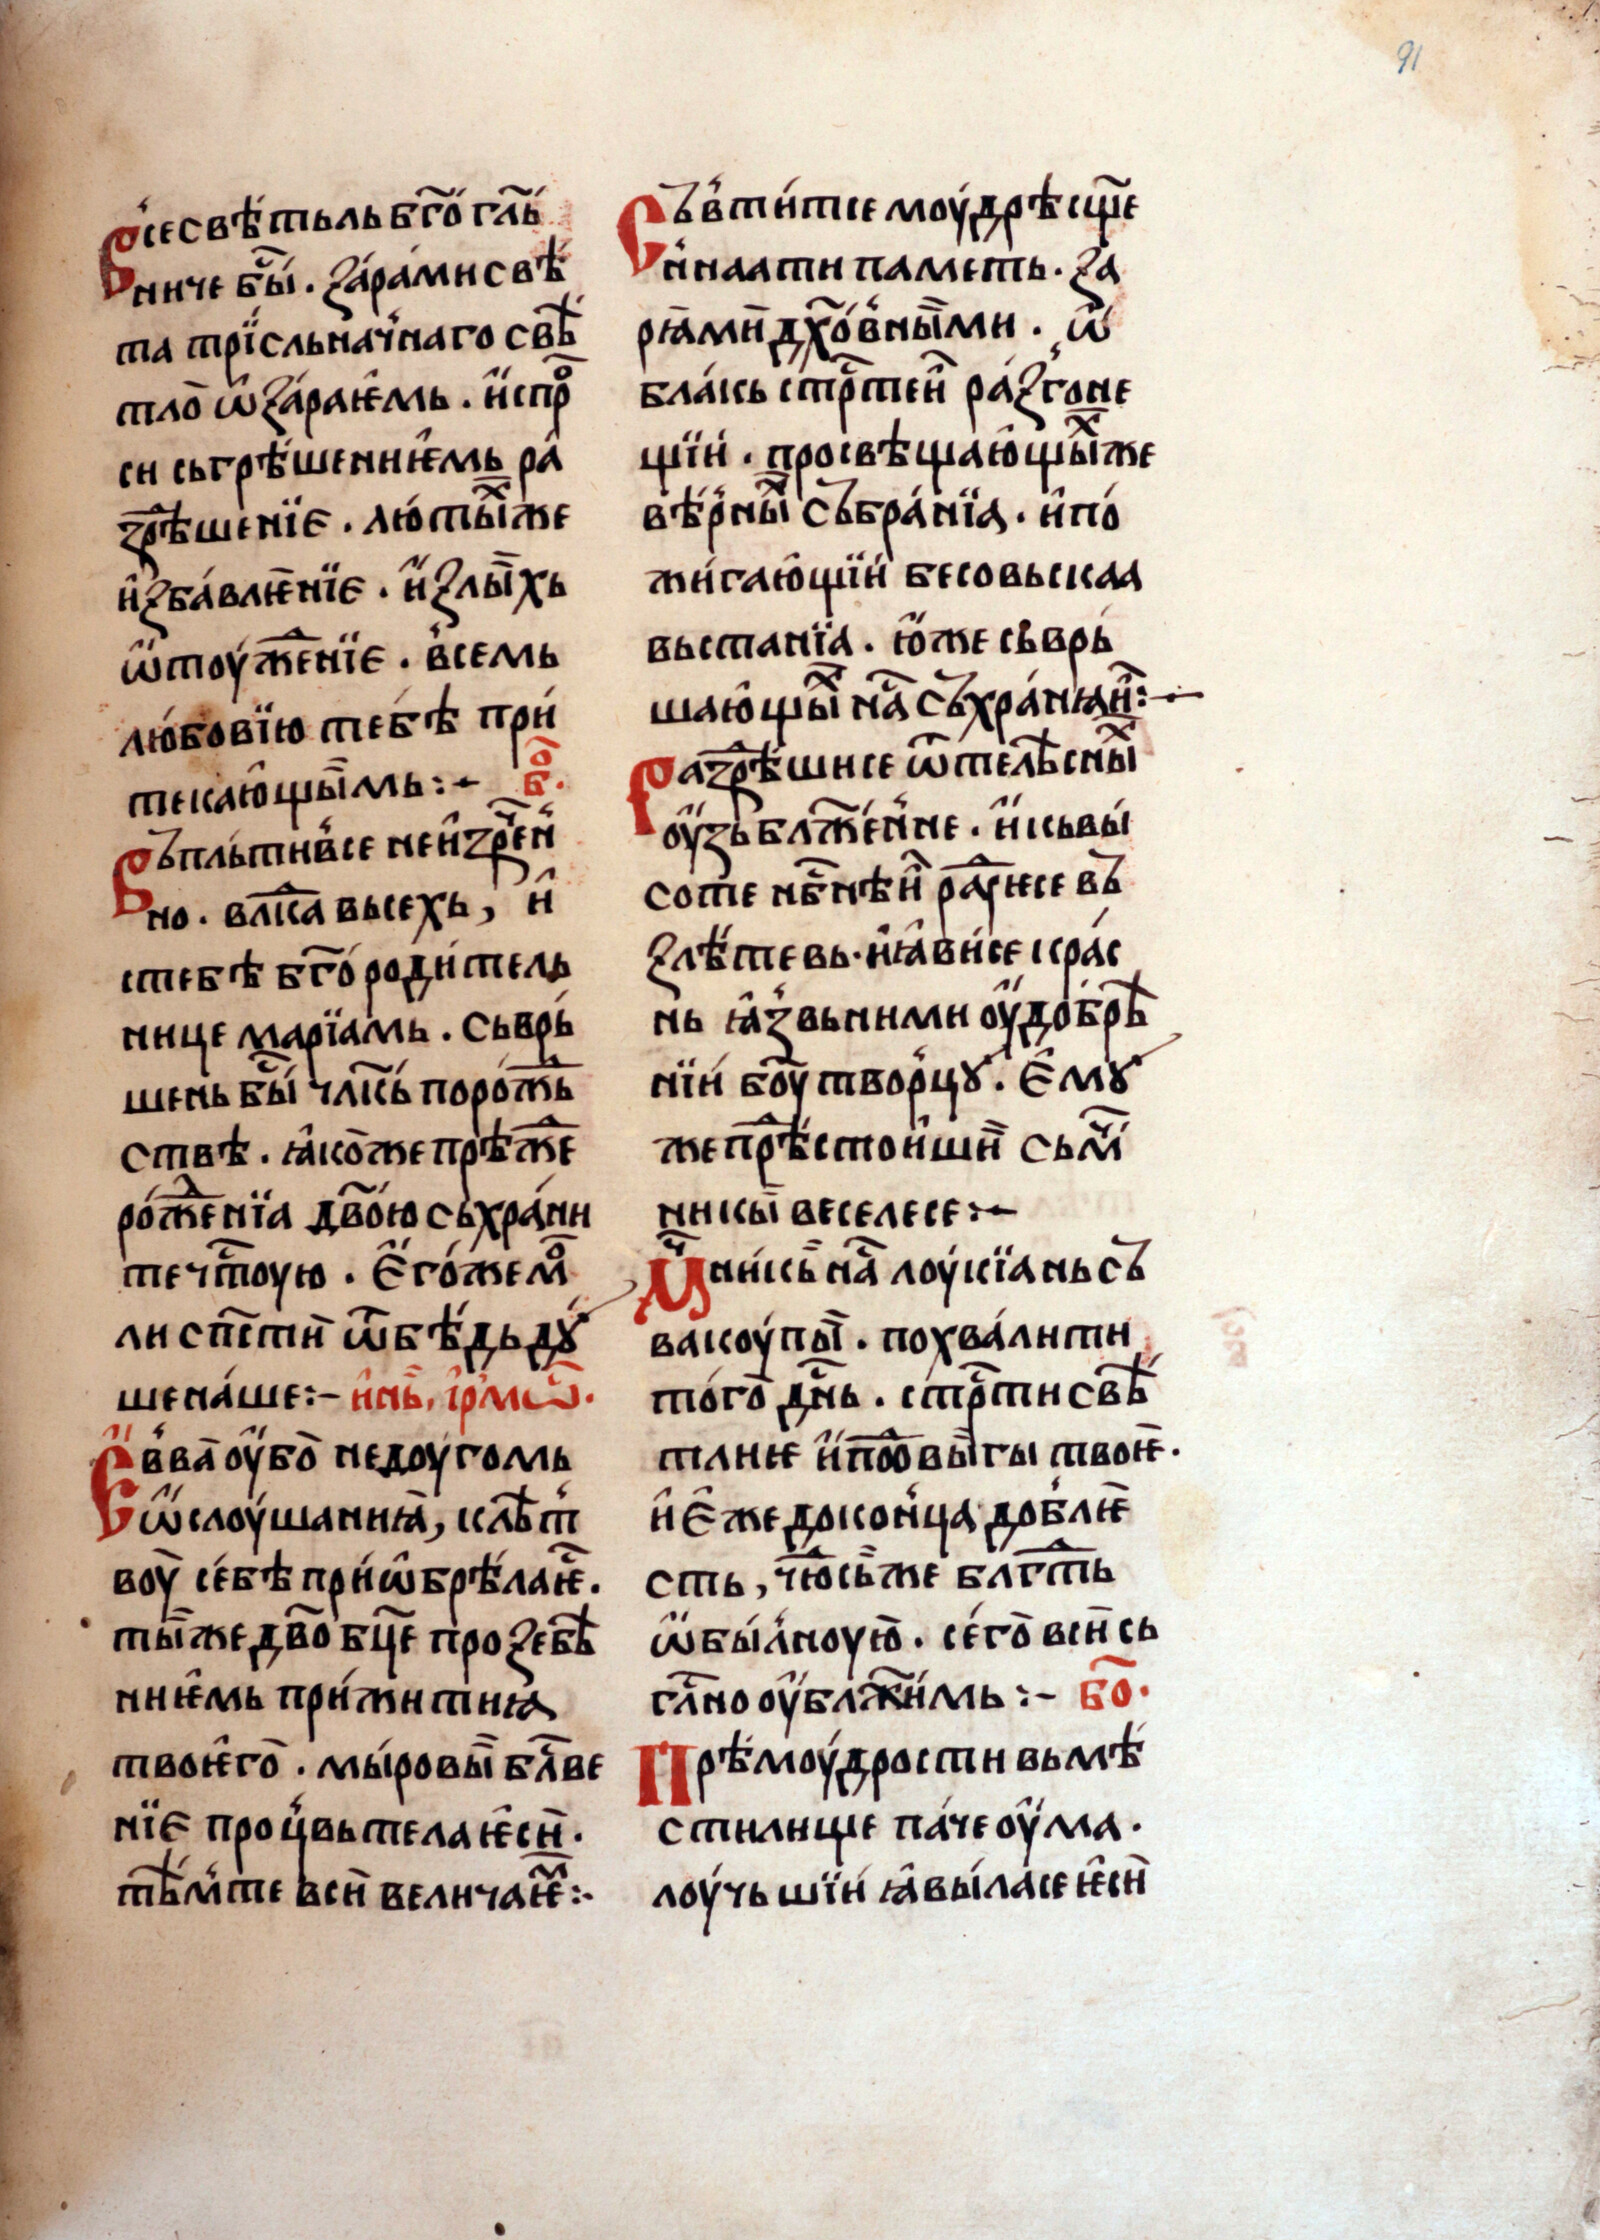 91
Все свѣ́тьль бг҃о́гл҃ь́
ниче бы҇́. ꙁа́ра́ми свѣ́
та трїсльнач́наго свѣ̑
тло ѿꙁа́раѥ́мь. и҆спро̑
си сьгрѣ́шенѥ́мь ра
ꙁрѣ́шенїе. лю́ты̑хже
и҆ꙁба́влѥ́нїе. и҆ꙁлы́хь
ѿтоу́женїе. в́семь
лю́бовїю тебѣ̀ при́
текаю́щы́мь:~ б҃о.
Въпль́тив́се неи҆ꙁреч҇ен́
но. влⷣка вьсехь, и҆
стебѣ̀ бг҃о́роди́тель
нице марїамь. сьврь́
шень бы҇́ чл҃кь́ поро́жь
ствѣ. ꙗ҆коже прѣ́же
ро́женїа дв҃о́ю сьхра́ни
теч҇тоую. Е҆го́жемо̑
ли сп҃сти ѿбѣ́дь дꙋ́
шена́ше:~ и҆нь, і҆рмѡ҇.
Е҆в́ва оу҆бо недоугомь
ѿслоу́шанїꙗ, клѣт́
воу себѣ при́ѡ҆брѣ́лаѥ҇.
ты́же дв҃о бц҃е проꙁебѣ
нїѥ́мь при́житиꙗ
твоѥ́го. мы́ровы̀ блⷭ҇ве
нїе проц́вьтелаѥ́си.
тѣм́те вси велича́ѥ҇:~
Съв́ти́тсе моу́дрѣ сщ҃е
н́наати паметь. ꙁа
рꙗ́ми дх҃о́в́ны́ми. ѿ
бла́кь стрⷭ҇тей ра́ꙁгоне
щїи́. просвѣщаю́щы̑хже
вѣ́р́ны̑х събра́нїа. и҆по́
жи́гаю҆щїи́ бесовьскаа
вьстанїа. ю҆же сьврь́
шаю҆щы̑х на҇ съхра́нꙗи҆:~
Раꙁрѣ́шисе ѿтелѣ́сны̑х
оу҆ꙁь блаже́н́не. и҆ кьвы́
соте нбⷭ҇нѣи҆ раⷣуѥсе въ
ꙁлѣ́тевь. и҆ꙗ҆ви́се кра́с
нь ꙗ҆́ꙁвьними оу҆до́брѣ
нїи́ бо҃у твор́цꙋ. Е҆мꙋ
же прѣ́стои҆ши сьмч҃
никы́ веселесе:~
Мч҃ни́кь на҇ лоу́кїань съ
вакоу́пы̀. похвали́ти
то́го дн҇ь. стрⷭ҇ти свѣ̑
тлиѥ и҆поⷣвы́гы твоѥ̀.
и҆ Е҆же доко́н́ца до́блѥ
сть, чю҇сь́же блгⷣть
ѿбы́л́ноую. се́го вси сь
гла҇но оу҆блажи́мь:~ б҃о.
Прѣ́моу́дрости вьмѣ́
стилище па́че оу҆ма.
лоу́чьшїи́ ꙗ҆вы́ласе ѥ҆си